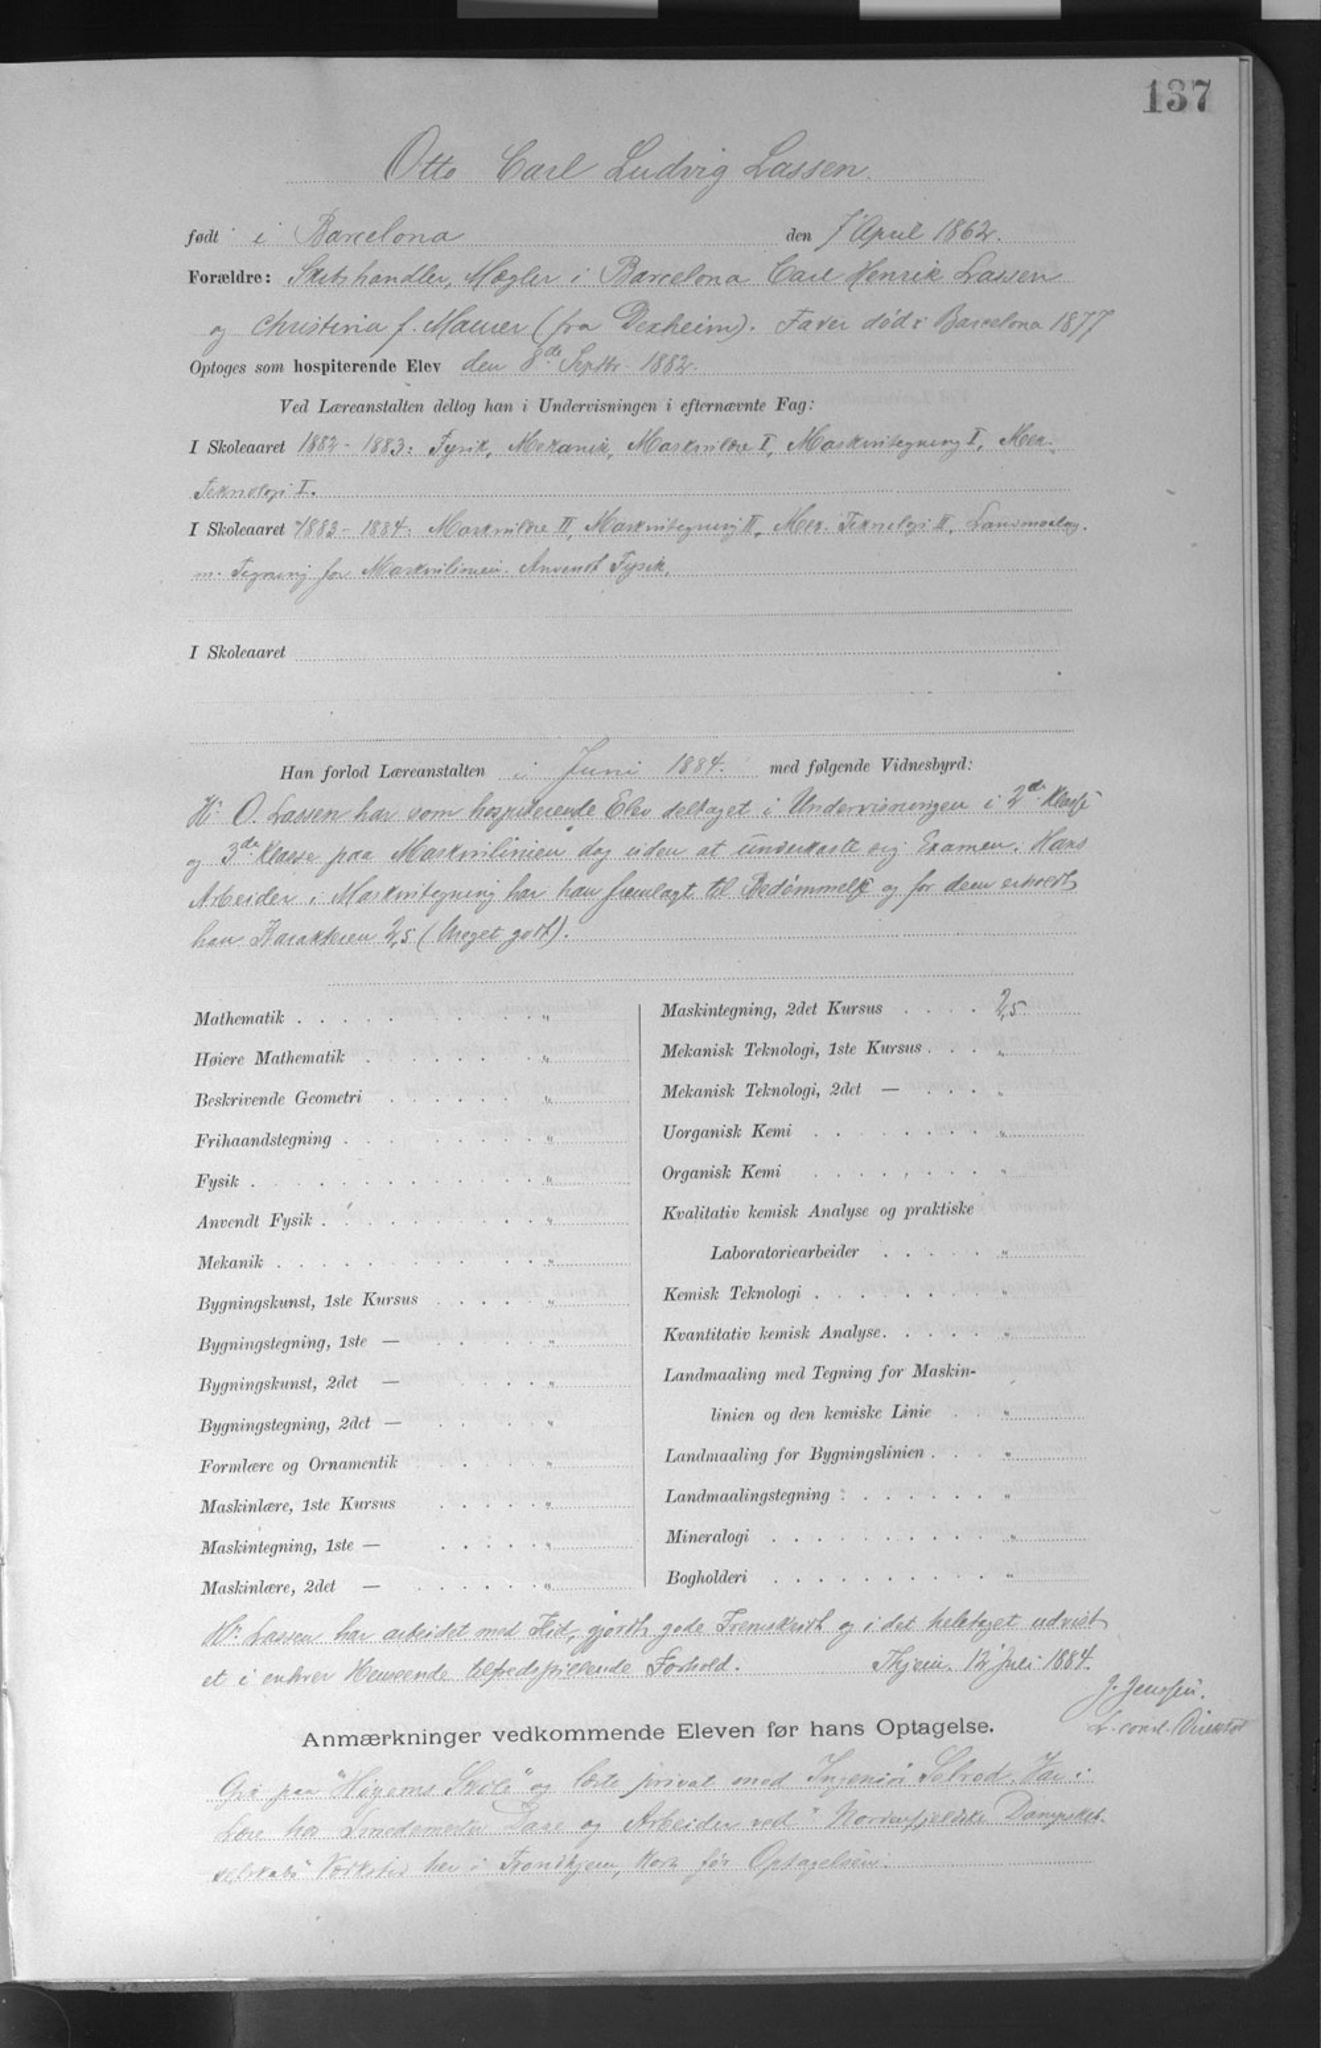 137
Otto Carl Ludvig Lassen.
født i Barcelona den 7 April 1862.
Forældre: Skibshandler, Mægler i Barcelona Carl Henrik Lassen
og Christina f. Maurer (fra Dexheim). Fader død i Barcelona 1877
Optoges som hospiterende Elev den 8de Septbr. 1882.
Ved Læreanstalten deltog han i Undervisningen i efternævnte Fag:
I Skoleaaret 1882 - 1883: Fysik, Mekanik, Maskinlære I, Maskintegning I, Mek.
Teknologi I.
I Skoleaaret 1883 - 1884: Maskinlære II, Maskintegning II, Mek. Teknologi II, Landmaaling
m. Tegning for Maskinlinien. Anvendt Fysik.
I Skoleaaret
Han forlod Læreanstalten i Juni 1884. med følgende Vidnesbyrd:
Hr. O. Lassen har som hospiterende Elev deltaget i Undervisningen i 2de Klasse
og 3die Klasse paa Maskinlinien dog uden at underkaste sig Examen. Hans
Arbeider i Maskintegning har han fremlagt til Bedømmelse og for dem erholdt
han Karakteren 2,5 (Meget godt).
Mathematik . . . "
Høiere Mathematik . . . "
Beskrivende Geometri . . . "
Frihaandstegning . . . "
Fysik . . . "
Anvendt Fysik . . . "
Mekanik . . . "
Bygningskunst, 1ste Kursus . . . "
Bygningstegning, 1ste — . . . "
Bygningskunst, 2det — . . . "
Bygningstegning, 2det — . . . "
Formlære og Ornamentik . . . "
Maskinlære, 1ste Kursus . . . "
Maskintegning, 1ste — . . . "
Maskinlære, 2det — . . . "
Maskintegning, 2det Kursus . . . 2,5
Mekanisk Teknologi, 1ste Kursus . . . "
Mekanisk Teknologi, 2det — . . . "
Uorganisk Kemi . . . "
Organisk Kemi . . . "
Kvalitativ kemisk Analyse og praktiske
Laboratoriearbeider . . . "
Kemisk Teknologi . . . "
Kvantitativ kemisk Analyse . . . "
Landmaaling med Tegning for Maskin-
linien og den kemiske Linie . . . "
Landmaaling for Bygningslinien . . . "
Landmaalingstegning . . . "
Mineralogi . . . "
Bogholderi . . . "
Hr. Lassen har arbeidet med Flid, gjordt gode Fremskridt og i det heletaget udvist
et i enhver Henseende tilfredsstillende Forhold. Thjem. 12 Juli 1884.
J. Jenssen.
Direktør
Anmærkninger vedkommende Eleven før hans Optagelse.
Gik paa "Høyems Skole" og læste privat med Ingeniør Var i
Lære hos Smedemester og Arbeider ved "Nordenfjeldske Dampskib-
selskabs" Værksted her i Trondhjem, kort før Optagelsen.